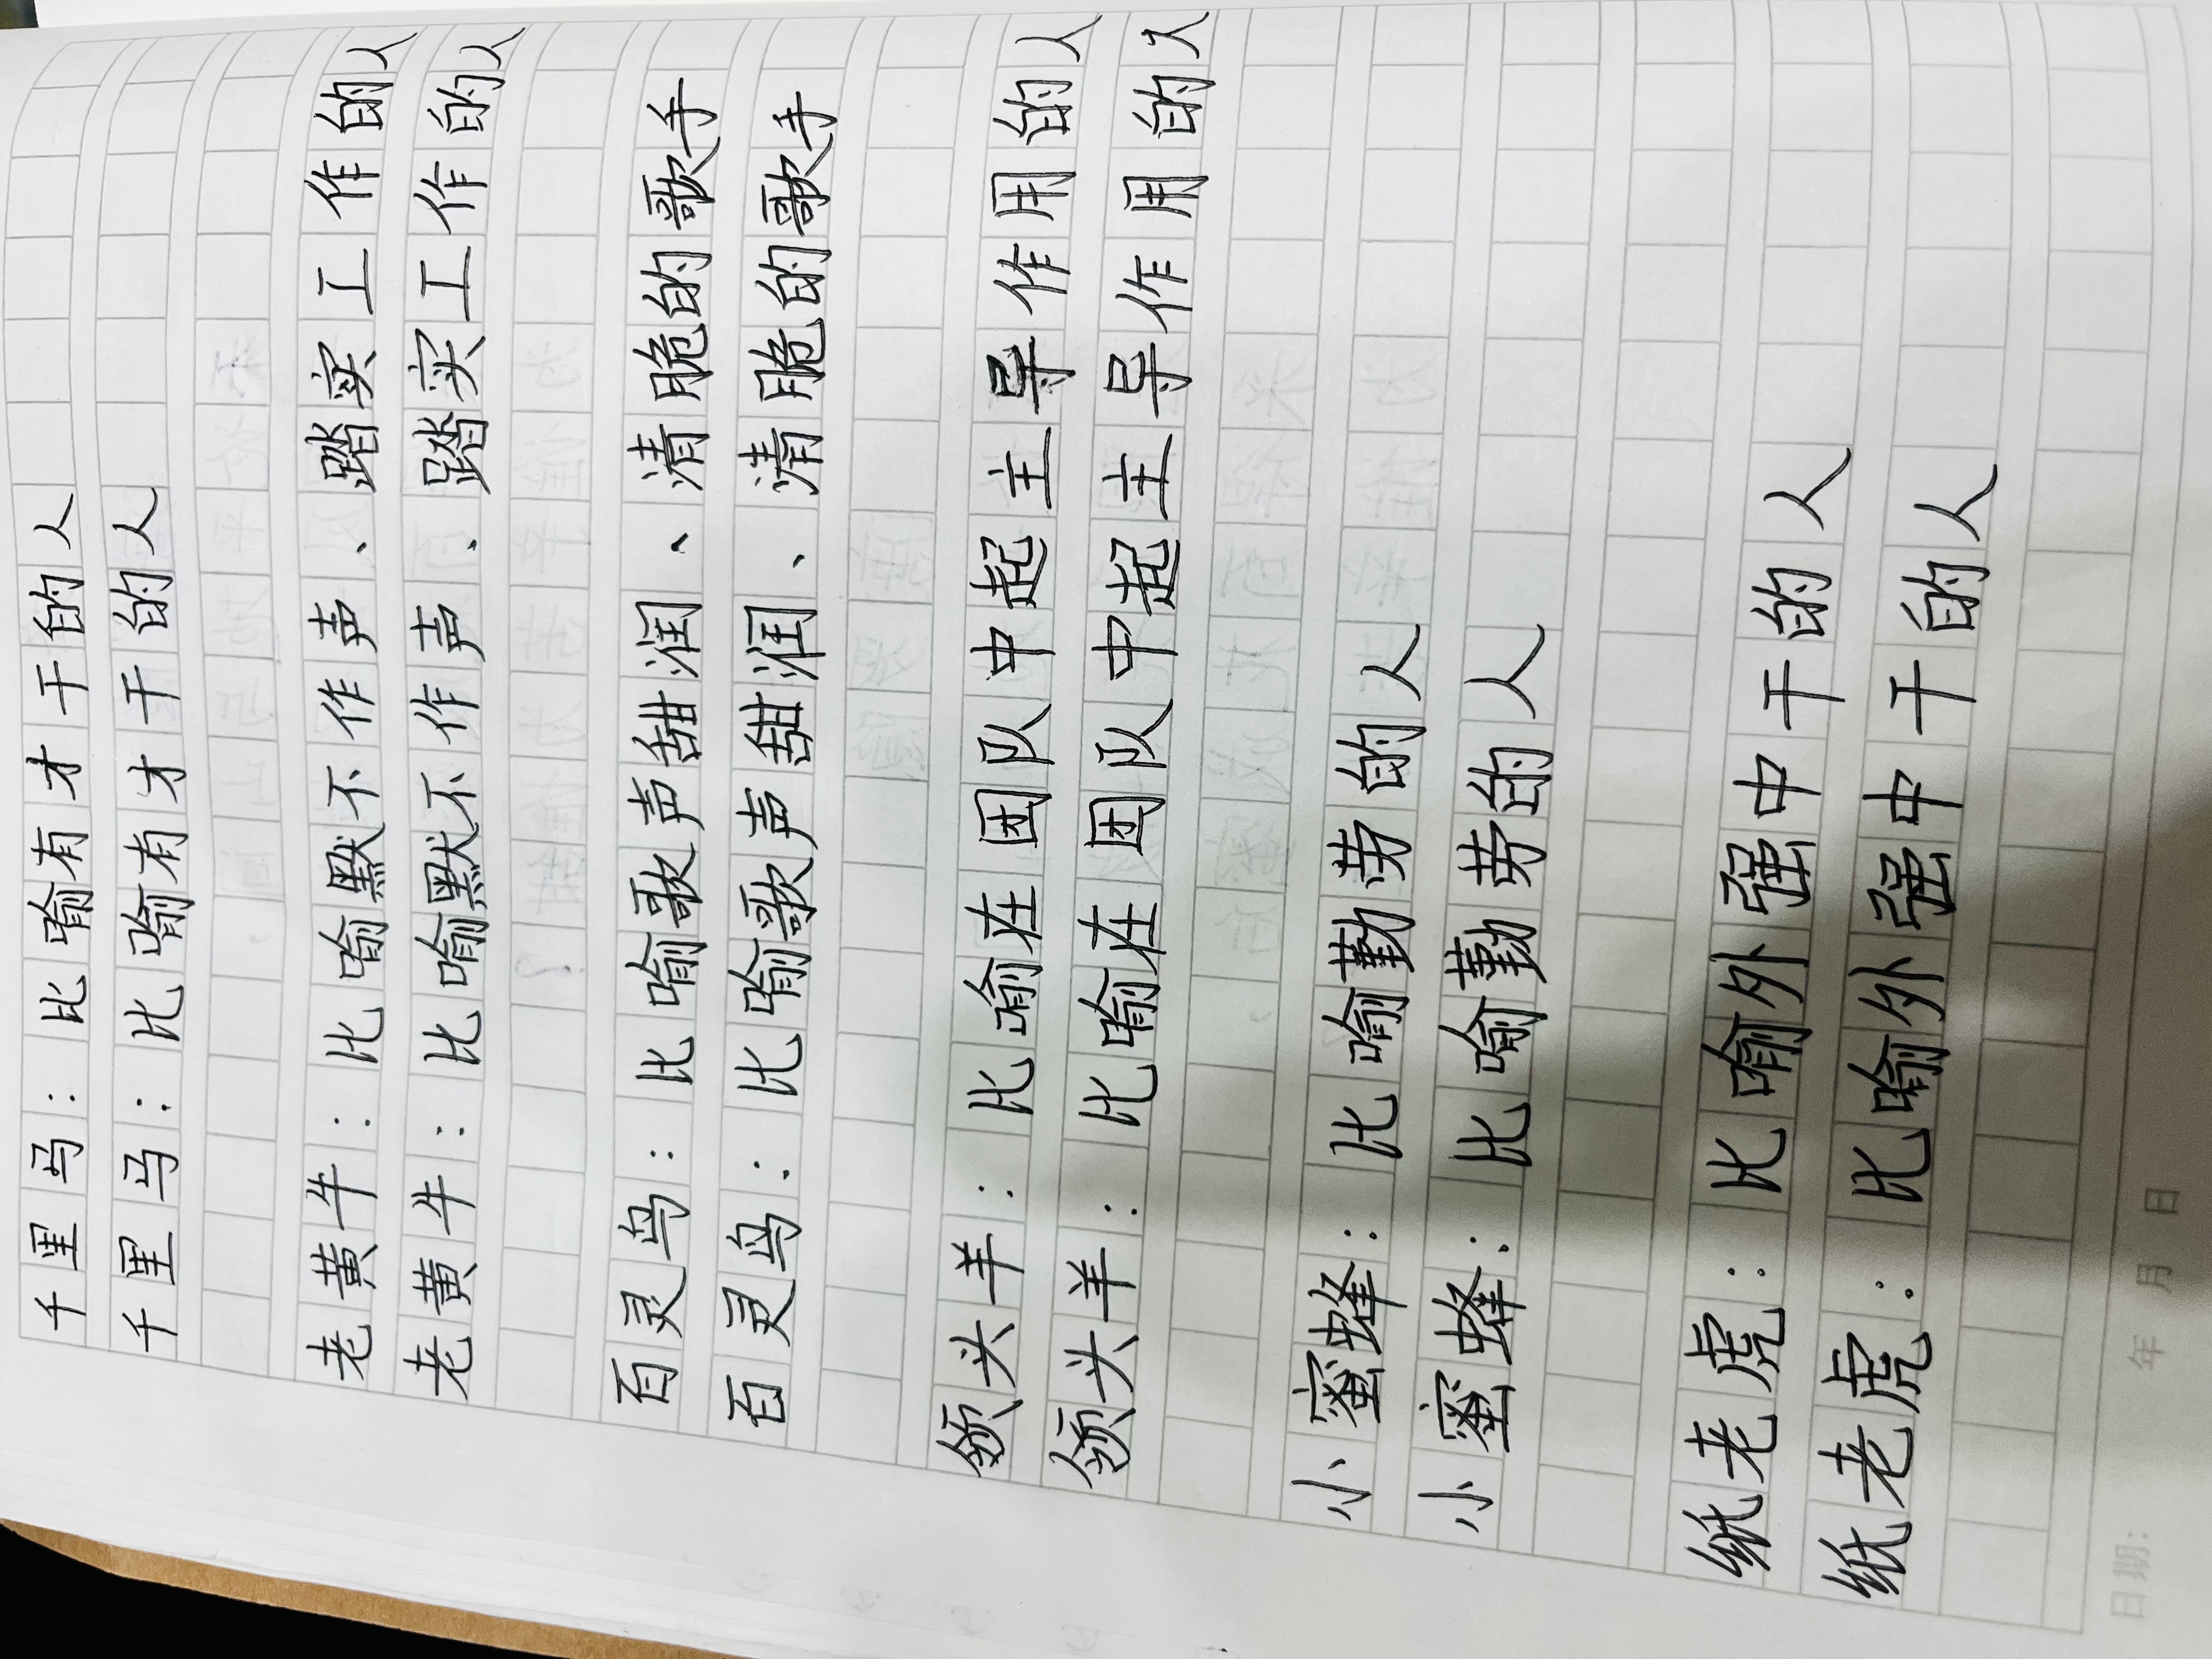 千里马：比喻有才干的人
千里马：比喻有才干的人
老黄牛：比喻默不作声、踏实工作的人
老黄牛：比喻默不作声、踏实工作的人
百灵鸟：比喻歌声甜润、清脆的歌手
百灵鸟：比喻歌声甜润、清脆的歌手
领头羊：比喻在团队中起主导作用的人
领头羊：比喻在团队中起主导作用的人
小蜜蜂：比喻勤劳的人
小蜜蜂：比喻勤劳的人
纸老虎：比喻外强中干的人
纸老虎：比喻外强中干的人
日期： 年 月 日